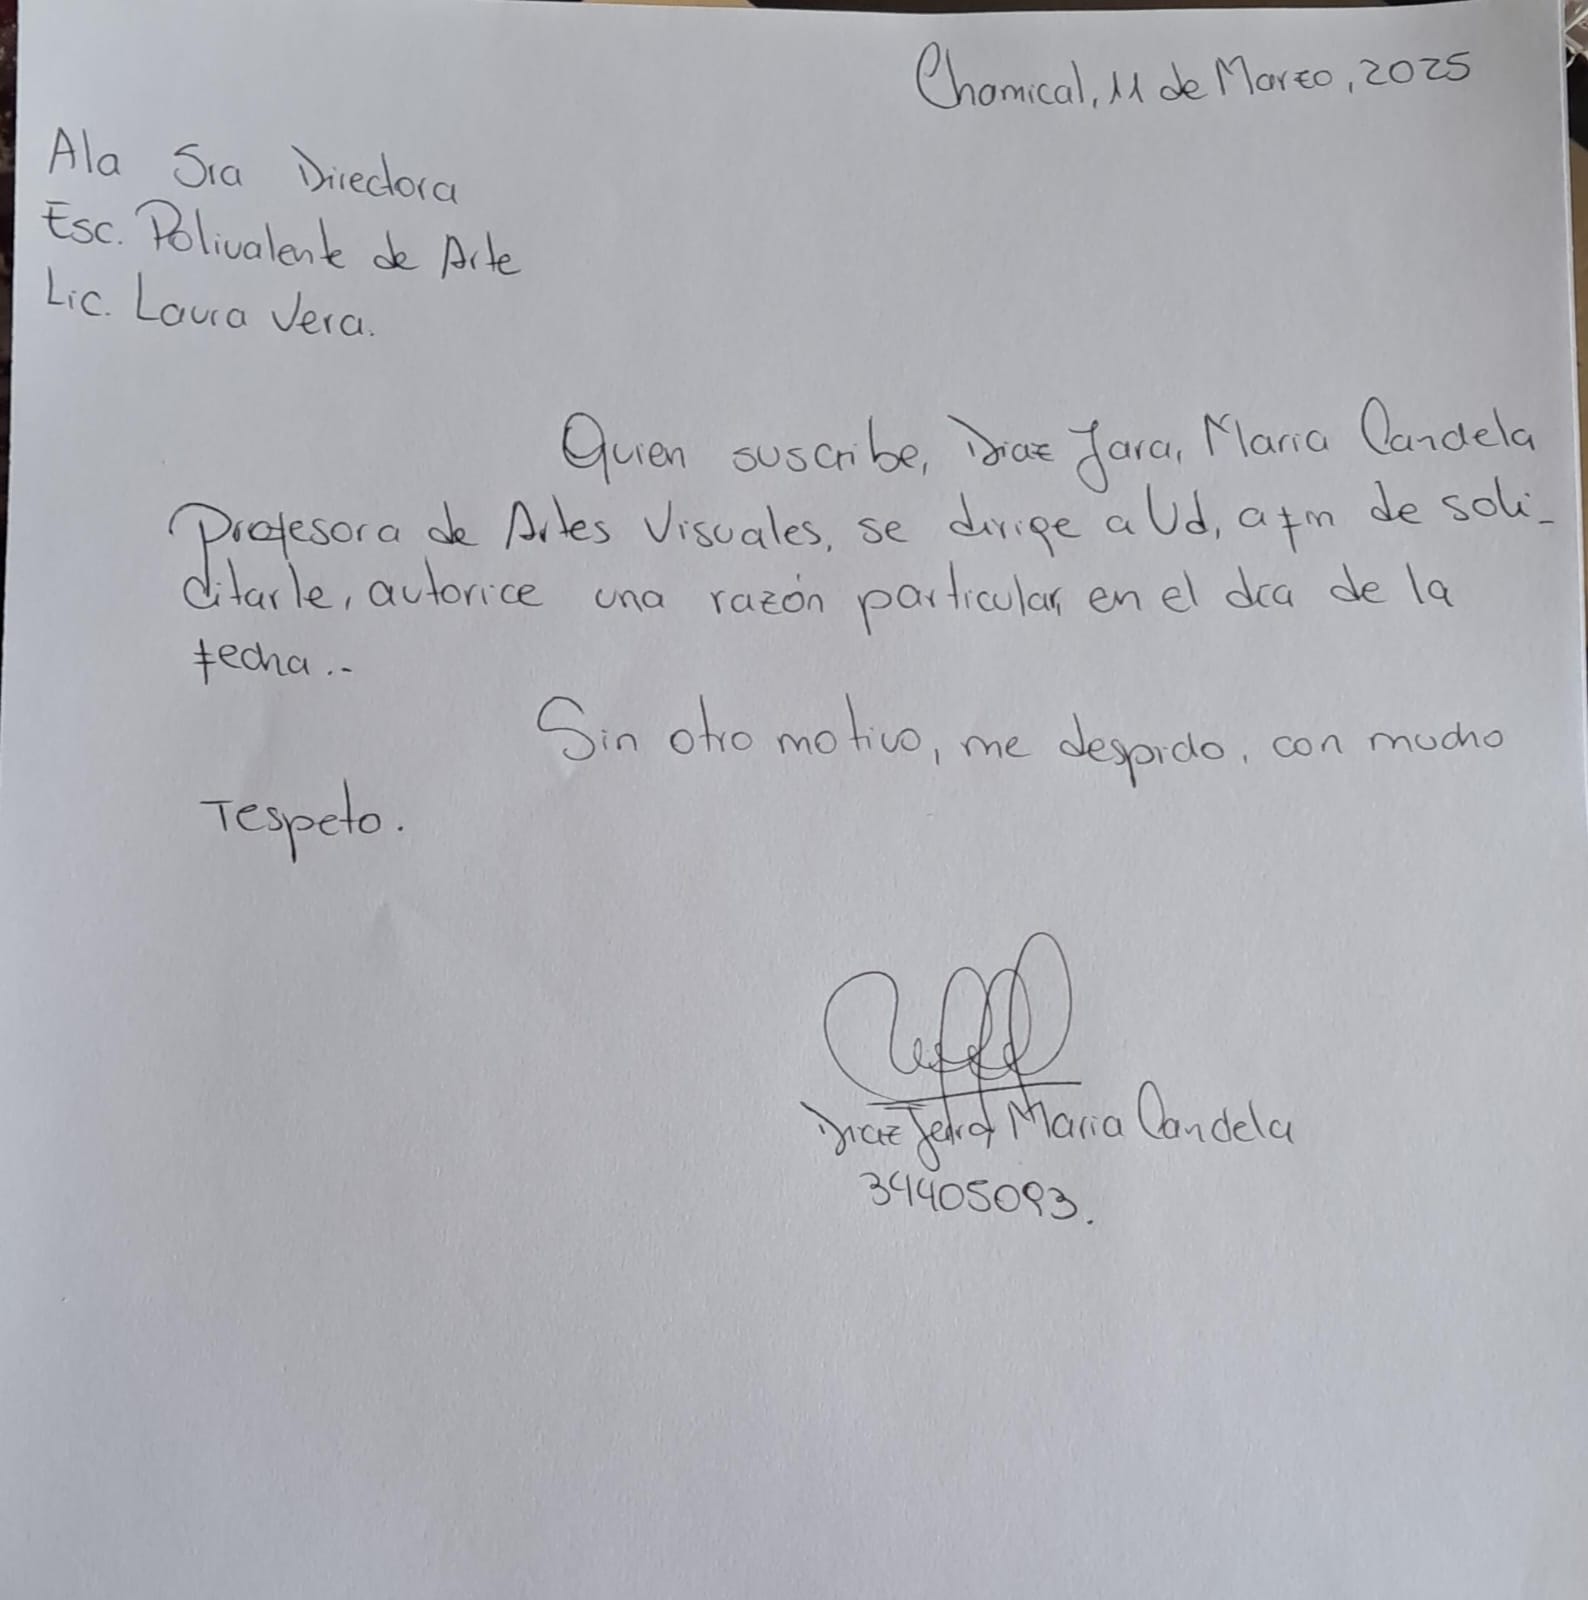 Chamical, 11 de Marzo, 2025
A la Sra Directora
Esc. Polivalente de Arte
Lic. Laura Vera.
Quien suscribe, Diaz Jara, Maria Candela
Profesora de Artes Visuales, se dirige a Ud, a fin de soli-
citarle, autorice una razón particular, en el día de la
fecha..-
Sin otro motivo, me despido, con mucho
respeto.
Diaz Jara Maria Candela
34405093.